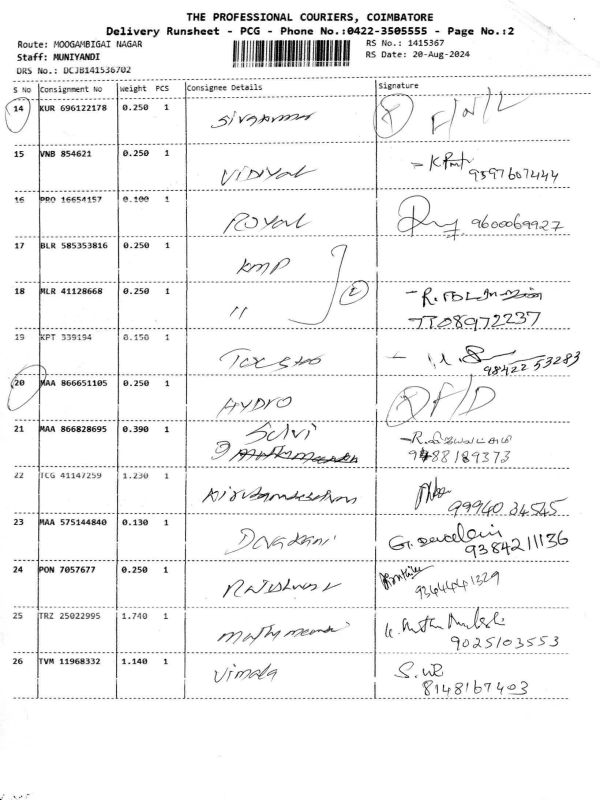 THE PROFESSIONAL COURIERS, COIMBATORE
Delivery Runsheet - PCG - Phone No.:0422-3505555 - Page No.:2
Route: MOOGAMBIGAI NAGAR RS No.: 1415367
Staff: MUNIYANDI RS Date: 20-Aug-2024
DRS No.: DCJB141536702
S No Consignment No Weight PCS Consignee Details Signature
14 KUR 696122178 0.250 1
15 VNB 854621 0.250 1 VIDIYAL
9597607444
16 PRO 16654157 0.100 1 ROYAL 9600069927
17 BLR 585353816 0.250 1 KMP
18 MLR 41128668 0.250 1 11
7708972237
19 KPT 339194 0.150 1
98422 53283
20 MAA 866651105 0.250 1 HYDRO
21 MAA 866828695 0.390 1 Selvi
9488189373
22 TCG 41147259 1.230 1
99940 34545
23 MAA 575144840 0.130 1
9384211136
24 PON 7057677 0.250 1
9364441329
25 TRZ 25022995 1.740 1
9025103553
26 TVM 11968332 1.140 1 Vimala
8148167403